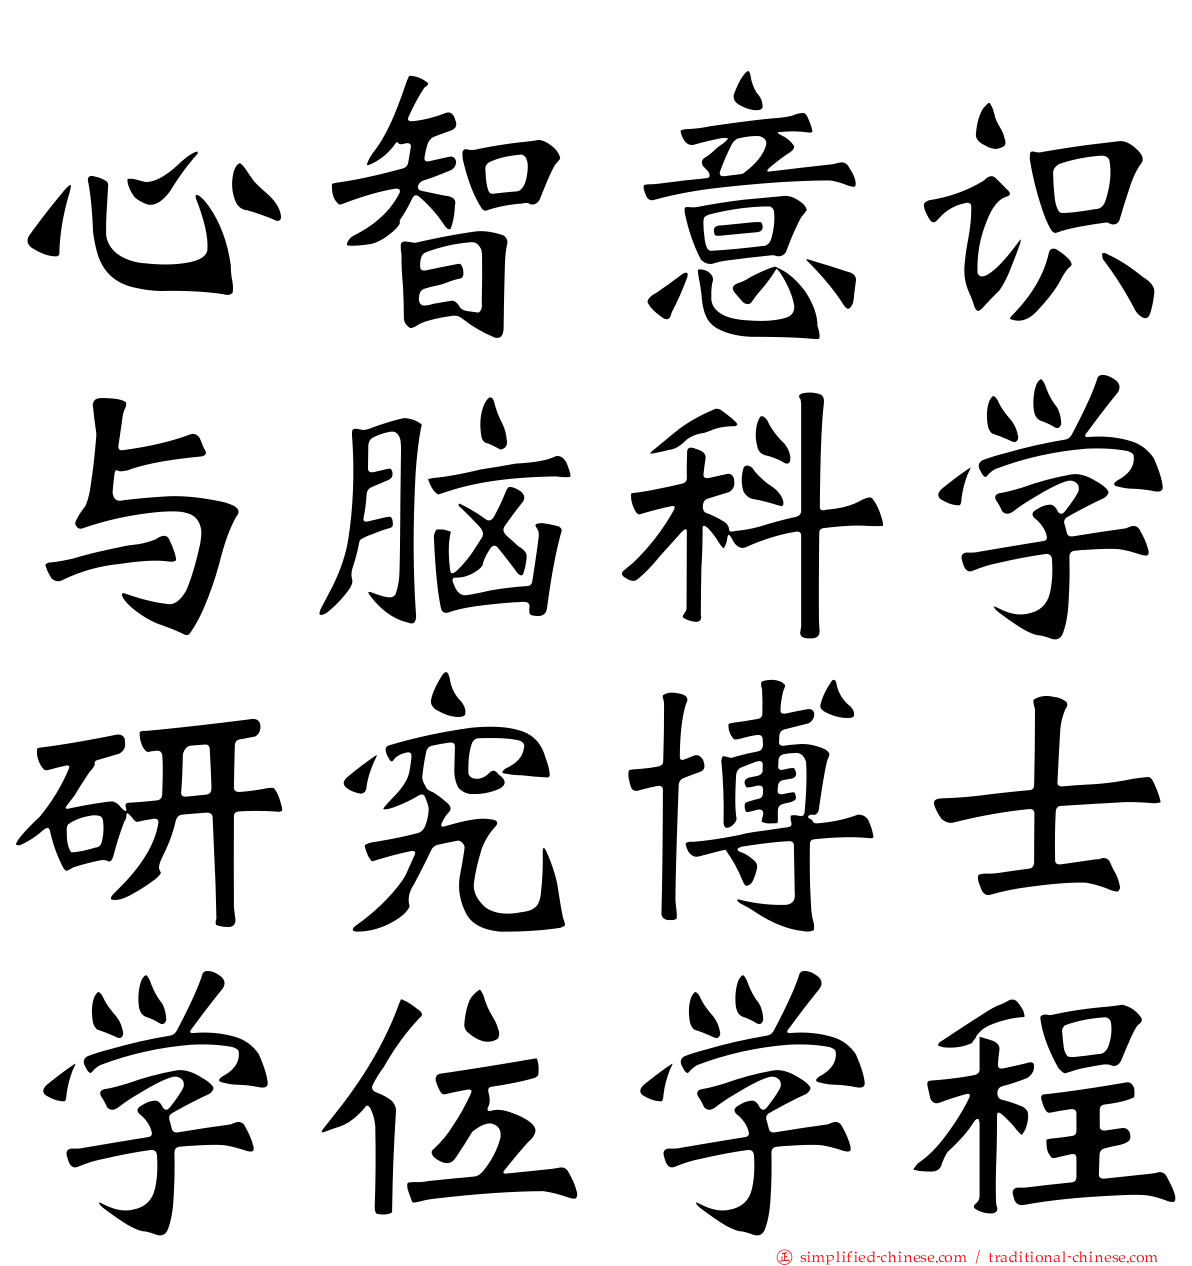 心智意识
与脑科学
研究博士
学位学程
㊣ simplified-chinese.com / traditional-chinese.com